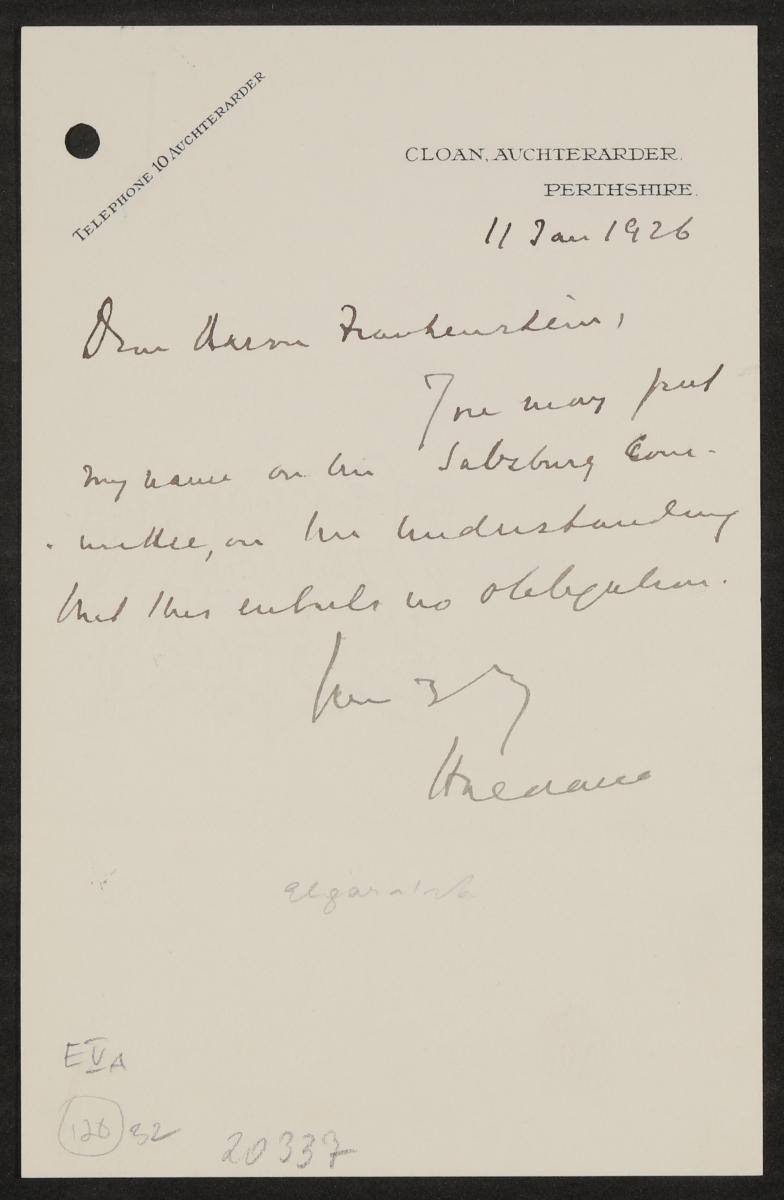 TELEPHONE 10 AUCHTERARDER
CLOAN, AUCHTERARDER.
PERTHSHIRE.
11 Jan 1926
Dear Baron Frankenstein,
You may put
my name on the Salzburg Com-
mittee, on the understanding
that this entails no obligation.
Haldane
EVA
128 32
20337